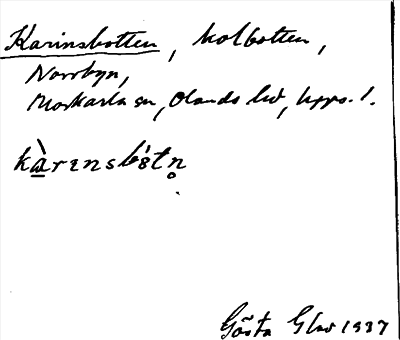 Karinsbotten, kolbotten,
Norrbyn,
Morkarla sn, Olands hd, Upps. l.
kàrɪnsbótn̥
Gösta Glav 1937